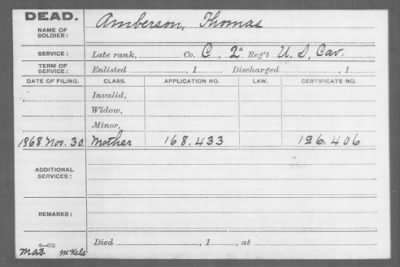 DEAD.
NAME OF SOLDIER: Amberson, Thomas
SERVICE: Late rank, Co. C, 2" Reg't U.S. Cav.
TERM OF SERVICE: Enlisted , 1 Discharged , 1
DATE OF FILING. CLASS. APPLICATION NO. LAW. CERTIFICATE NO.
Invalid,
Widow,
Minor,
1868 Nov. 30. Mother 168.433 126.406
ADDITIONAL SERVICES:
REMARKS:
Died , 1 , at